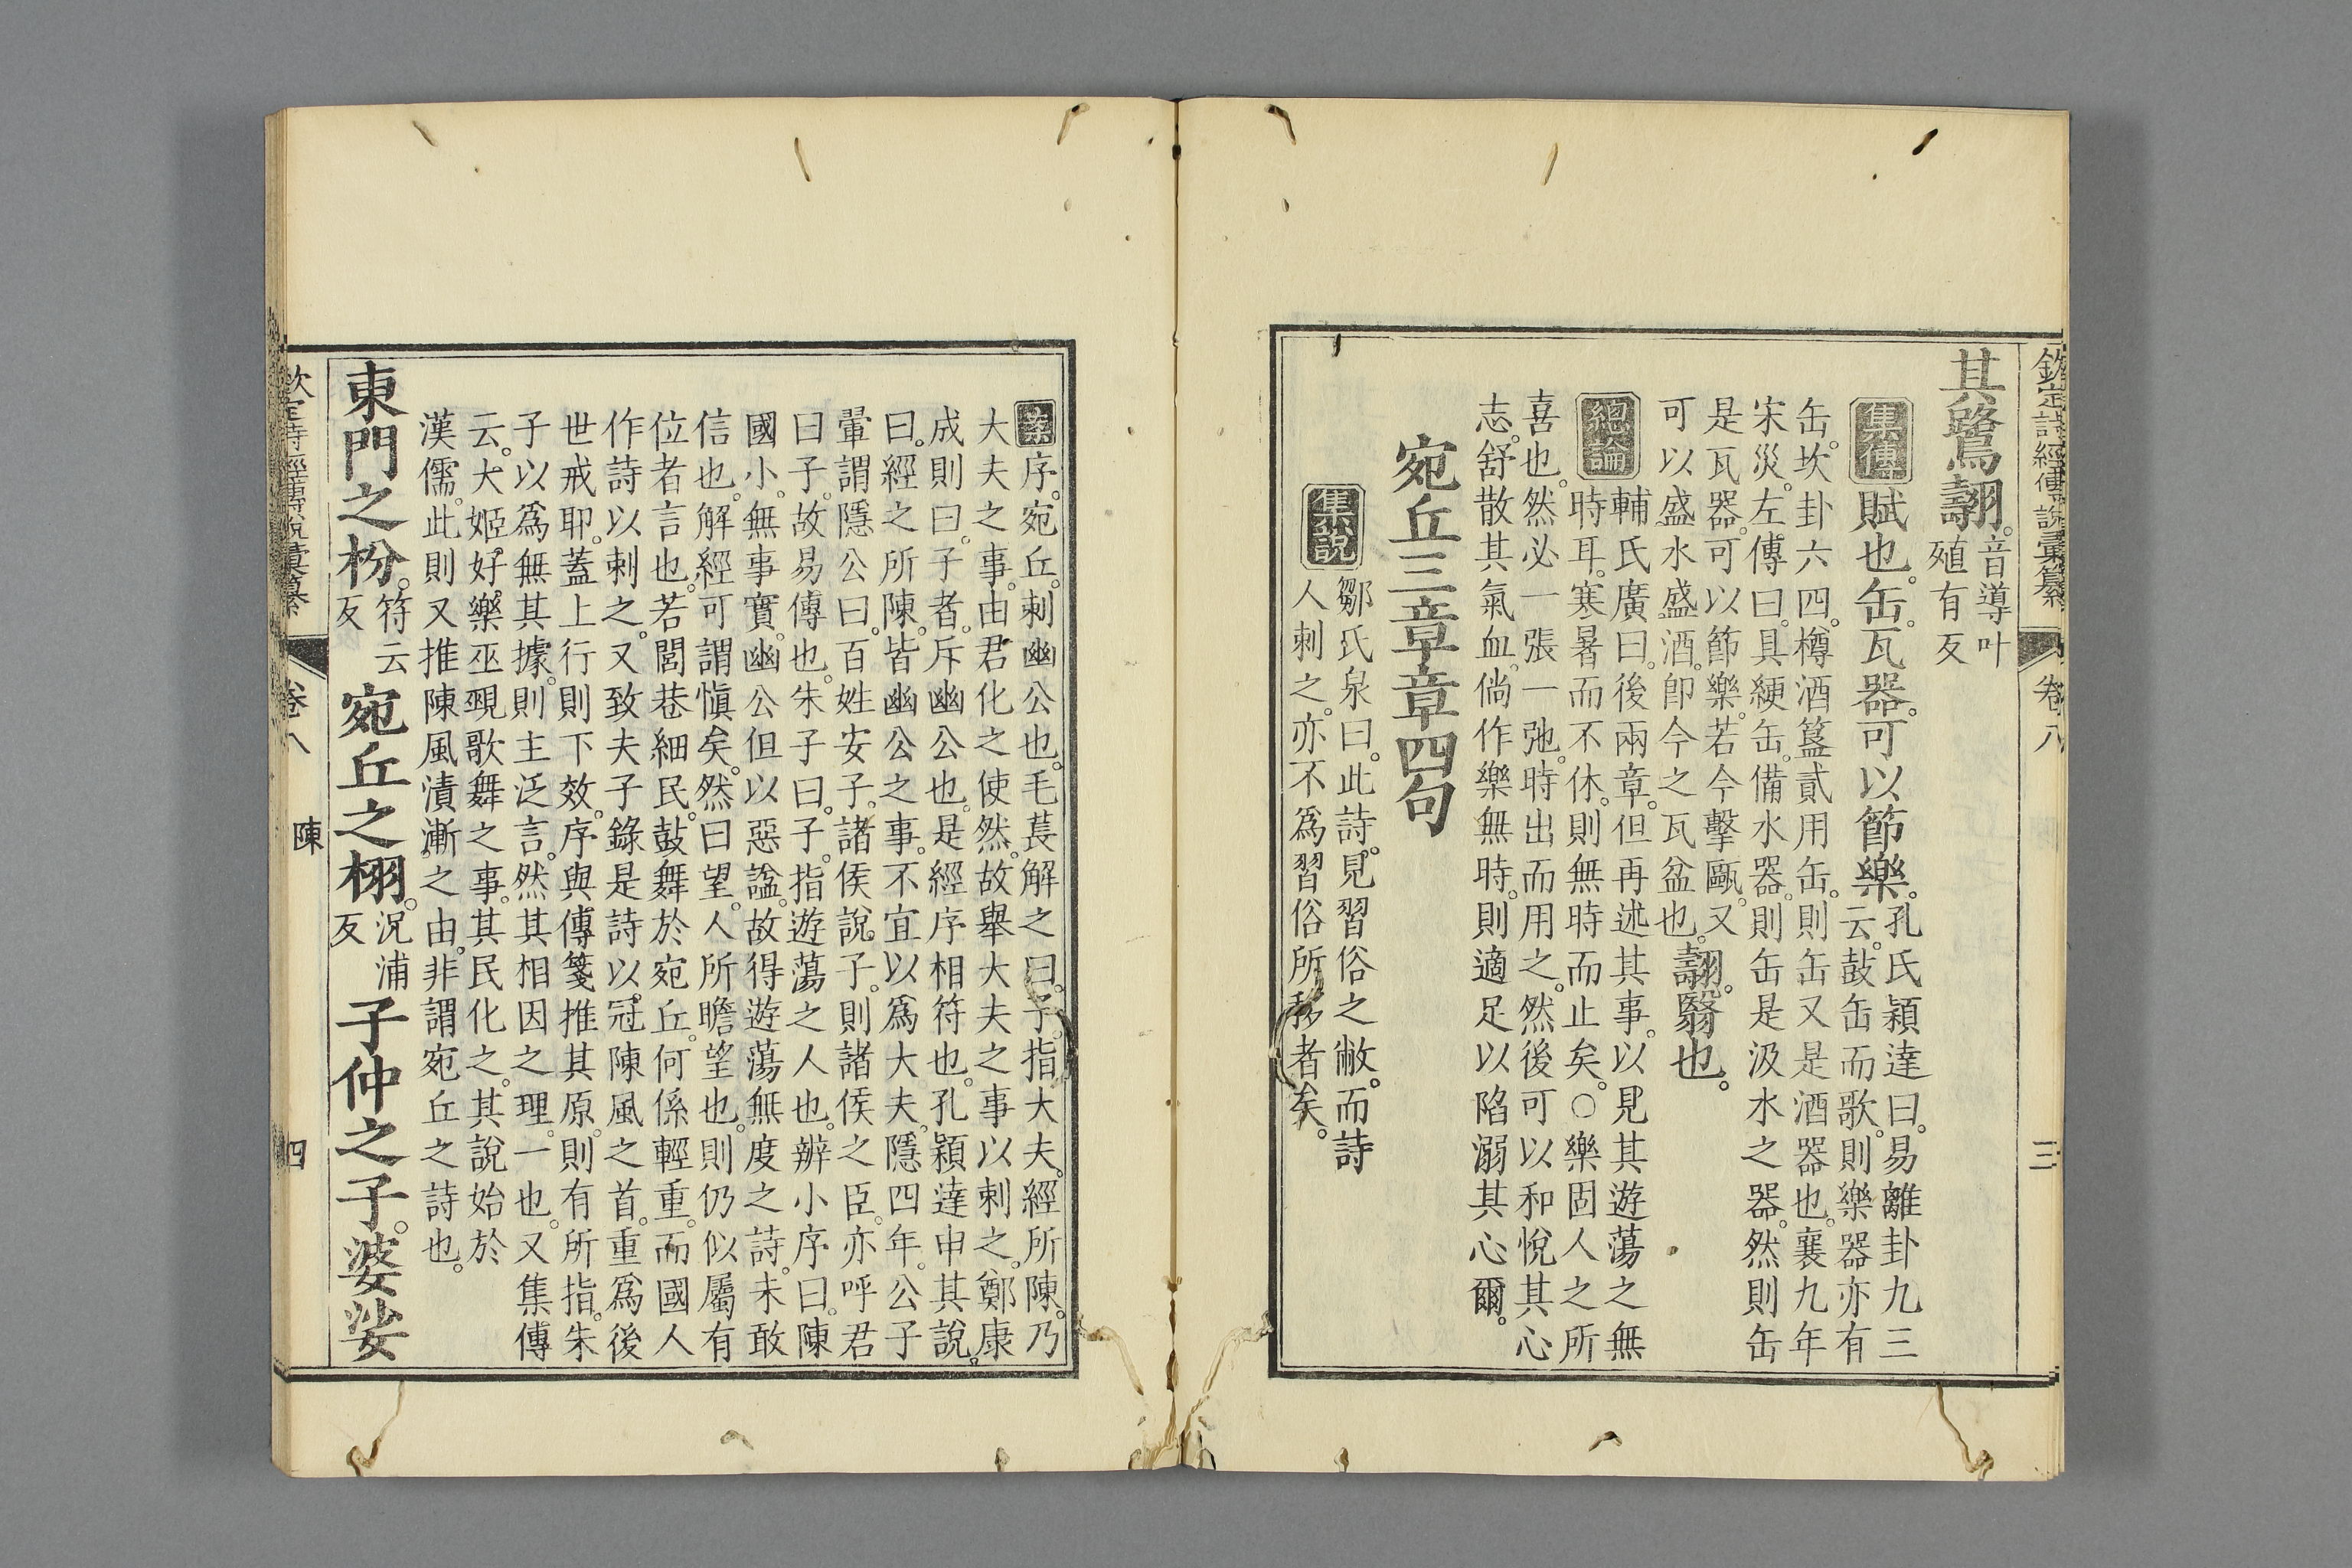 欽定詩經傳說彙纂 卷八 三
其鷺翿。音導叶
殖有反
集傳 賦也。缶。瓦器。可以節樂。孔氏穎達曰。易離卦九三
云。鼓缶而歌。則樂器亦有
缶。坎卦六四。樽酒簋貳用缶。則缶又是酒器也。襄九年
宋災。左傳曰。具綆缶。備水器。則缶是汲水之器。然則缶
是瓦器。可以節樂。若今擊甌。又
可以盛水盛酒。卽今之瓦盆也。翿。翳也。
總論 輔氏廣曰。後兩章。但再述其事。以見其遊蕩之無
時耳。寒暑而不休。則無時而止矣。○樂固人之所
喜也。然必一張一弛。時出而用之。然後可以和悅其心
志。舒散其氣血。倘作樂無時。則適足以陷溺其心爾。
宛丘三章章四句
集說 鄒氏泉曰。此詩。見習俗之敝。而詩
人刺之。亦不爲習俗所移者矣。
案 序。宛丘。刺幽公也。毛萇解之曰。子。指大夫。經所陳。乃
大夫之事。由君化之使然。故舉大夫之事以刺之。鄭康
成則曰。子者。斥幽公也。是經序相符也。孔穎達申其說。
曰。經之所陳。皆幽公之事。不宜以爲大夫。隱四年。公子
翬謂隱公曰。百姓安子。諸侯說子。則諸侯之臣。亦呼君
曰子。故易傳也。朱子曰。子。指遊蕩之人也。辨小序曰。陳
國小。無事實。幽公但以惡諡。故得遊蕩無度之詩。未敢
信也。解經可謂愼矣。然曰望。人所瞻望也。則仍似屬有
位者言也。若閭巷細民。鼓舞於宛丘。何係輕重。而國人
作詩以刺之。又致夫子錄是詩。以冠陳風之首。重爲後
世戒耶。蓋上行則下效。序與傳箋。推其原。則有所指。朱
子以爲無其據。則主泛言。然其相因之理。一也。又集傳
云。大姬好樂巫覡歌舞之事。其民化之。其說始於
漢儒。此則又推陳風漬漸之由。非謂宛丘之詩也。
東門之枌。符云
反 宛丘之栩。況浦
反 子仲之子。婆娑
欽定詩經傳說彙纂 卷八 陳 四